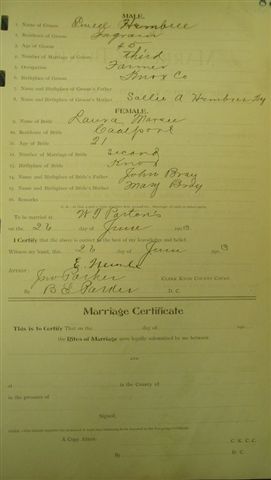 MALE.
1. Name of Groom Hembree
2. Residence of Groom Ingram
3. Age of Groom 45
4. Number of Marriage of Groom third
5. Occupation Farmer
6. Birthplace of Groom Knox Co
7. Name and Birthplace of Groom's Father
8. Name and Birthplace of Groom's Mother Sallie A Hembree Ky
FEMALE.
9. Name of Bride Laura
10. Residence of Bride Coalport
11. Age of Bride 21
12. Number of Marriage of Bride second
13. Birthplace of Bride Knox
14. Name and Birthplace of Bride's Father John Bray
15. Name and Birthplace of Bride's Mother Mary Bray
16. Remarks
To be married at W T Parton's
on the 26 day of June 1913
I Certify that the above is correct to the best of my knowledge and belief.
Witness my hand, this 26 day of June 1913
E.
Attest:
Parker CLERK KNOX COUNTY COURT.
By D. C.
Marriage Certificate
This is to Certify That on the day of 190
the Rites of Marriage were legally solemnized by me between
and
at in the County of
in the presence of
Signed,
A Copy Attest: C. K. C. C.
By D. C.